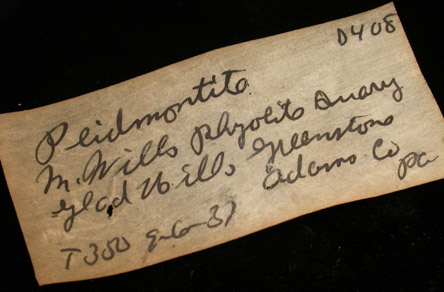 D408
Peidmontite
M. Wills Rhyolite Quary
Glad Hills Greenstone
Adams Co
Pa
T350 9-6-37